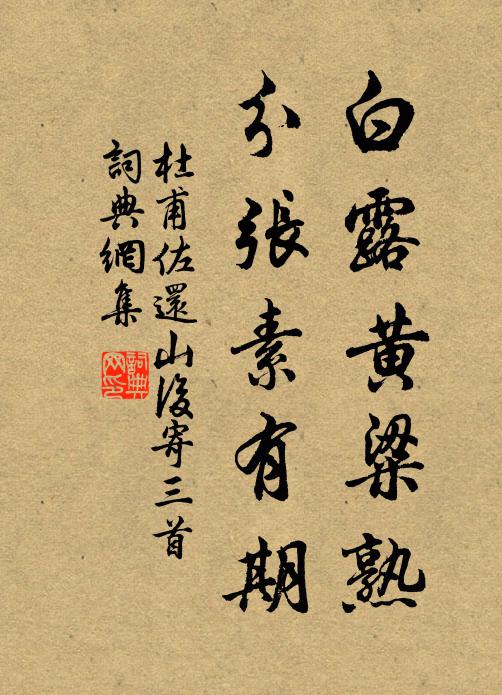 白露黄粱熟
分張素有期
杜甫佐還山後寄三首
詞典網集
詞典网印